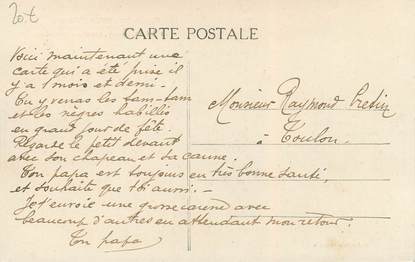 20 €
CARTE POSTALE
Voici maintenant une
carte qui a été prise il
y a 1 mois et demi.
Tu y verras les tam-tam
et les nègres habillés
en grand jour de fête.
Regarde le petit devant
avec son chapeau et sa canne.
Ton papa est toujours en très bonne santé,
et souhaite que toi aussi. –
Je t'envoie une grosse caresse avec
beaucoup d'autres en attendant mon retour.
Ton papa
Monsieur Raymond
à Toulon.